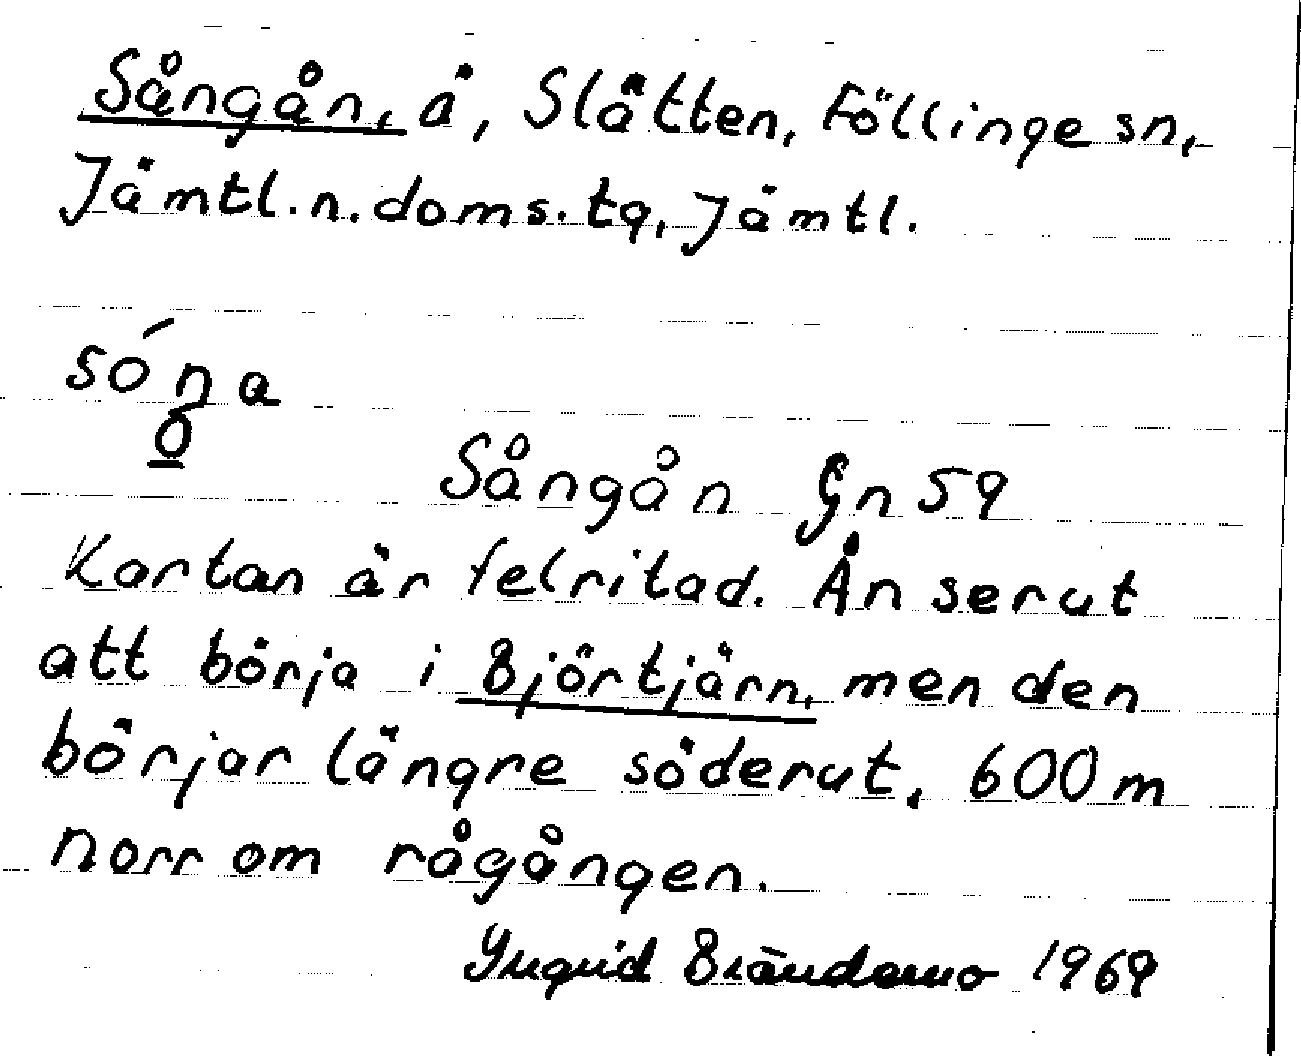 Sångån, å, Slåtten, Föllinge sn,
Jämtl. n. doms. tg, Jämtl.
Sångån Gn 59
Kartan är felritad. Ån ser ut
att börja i Björtjärn, men den
börjar längre söderut, 600 m
norr om rågången.
Ingrid 1969